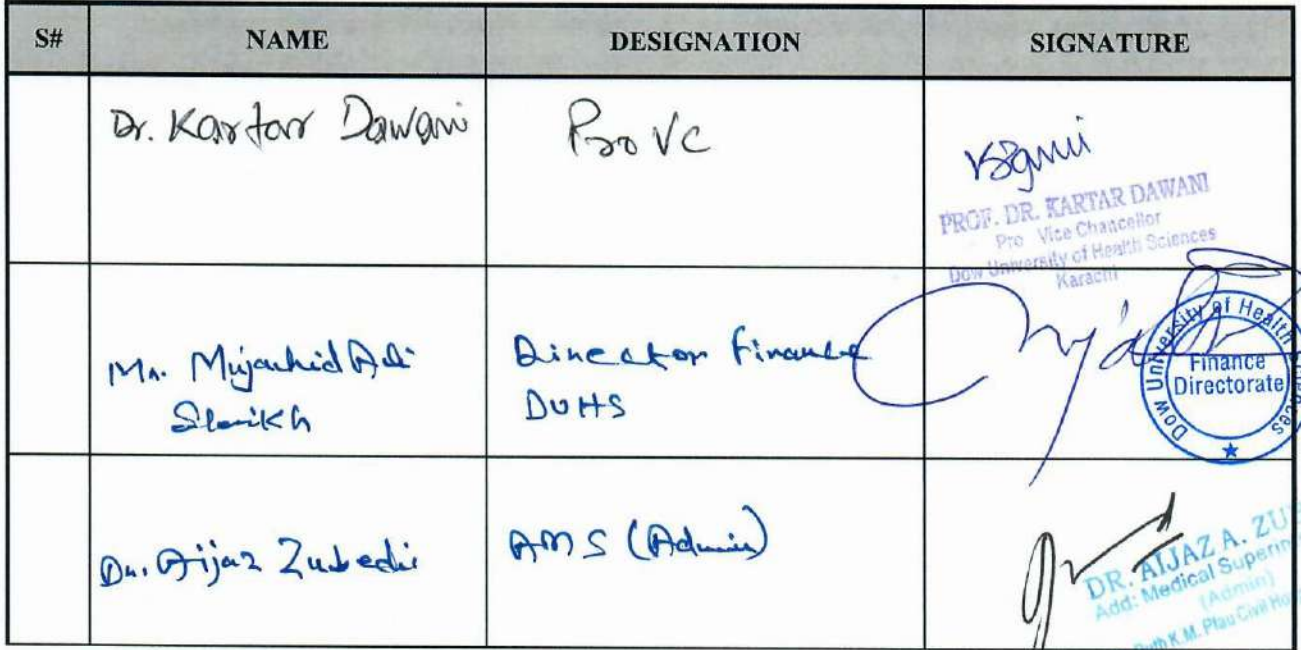 S# NAME DESIGNATION SIGNATURE
Dr. Kartar Dawani Pro VC
PROF. DR. KARTAR DAWANI
Pro Vice Chancellor
Dow University of Health Sciences
Karachi
Mr. Mujahid Ali Director Finance
Sheikh DUHS
Dow University of Health Sciences
Finance
Directorate
Dr. Aijaz Zubedi AMS (Admin)
DR. AIJAZ A. ZU
Add: Medical Superin
(Admin)
Ruth K.M. Pfau Civil Ho